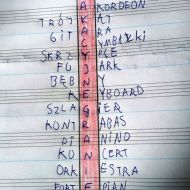 AKORDEON
TRÓJKĄT
GITARA
CYMBAŁKI
SKRZYPCE
FUJARK
BĘBNY
KEYBOARD
SZLAGIER
KONTRABAS
PIANINO
KONCERT
ORKIESTRA
FORTEPIAN